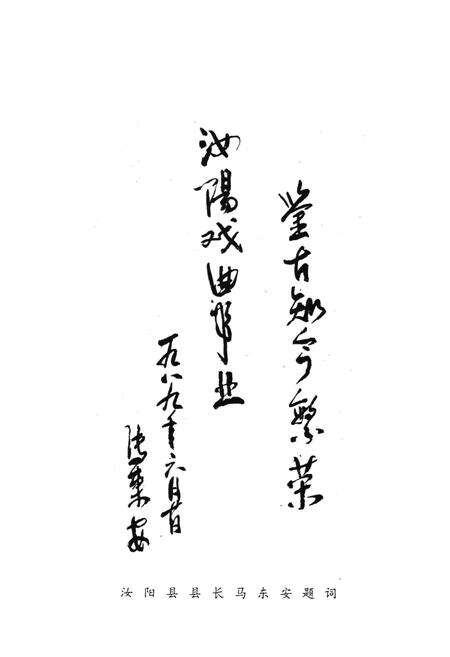 鉴古知今繁荣
汝陽戏曲事业
一九八九年六月廿日
馬東安
汝阳县县长马东安题词